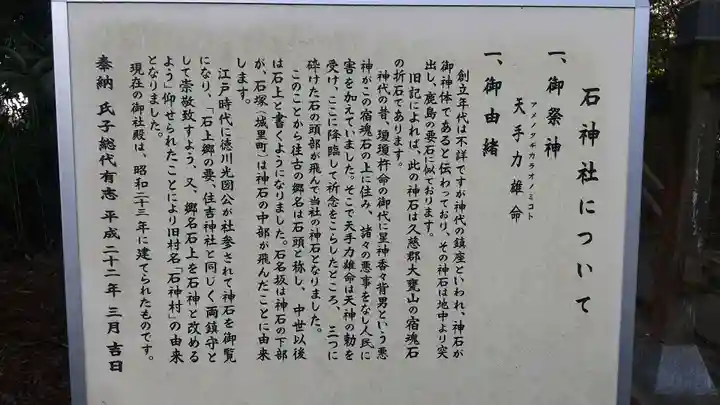 石神社について
一、御祭神
アメノタヂカラオノミコト
天手力雄命
一、御由緒
創立年代は不詳ですが神代の鎮座といわれ、神石が
御神体であると伝わっており、その神石は地中より突
出し、鹿島の要石に似ております。
旧記によれば、此の神石は久慈郡大甕山の宿魂石
の折石であります。
神代の昔、瓊瓊杵命の御代に星神香々背男という悪
神がこの宿魂石の上に住み、諸々の悪事をなし人民に
害を加えていました。そこで天手力雄命は天神の勅を
受け、ここに降臨して祈念をこらしたところ、三つに
砕けた石の頭部が飛んで当社の神石となりました。
このことから往古の郷名は石頭と称し、中世以後
は石上と書くようになりました。石名坂は神石の下部
が、石塚(城里町)は神石の中部が飛んだことに由来
します。
江戸時代に徳川光圀公が社参されて神石を御覧
になり、「石上郷の要、住吉神社と同じく両鎮守と
して崇敬致すよう、又、郷名石上を石神と改める
よう」仰せられたことにより旧村名「石神村」の由来
となりました。
現在の御社殿は、昭和二十三年に建てられたものです。
奉納 氏子総代有志 平成二十二年 三月 吉日